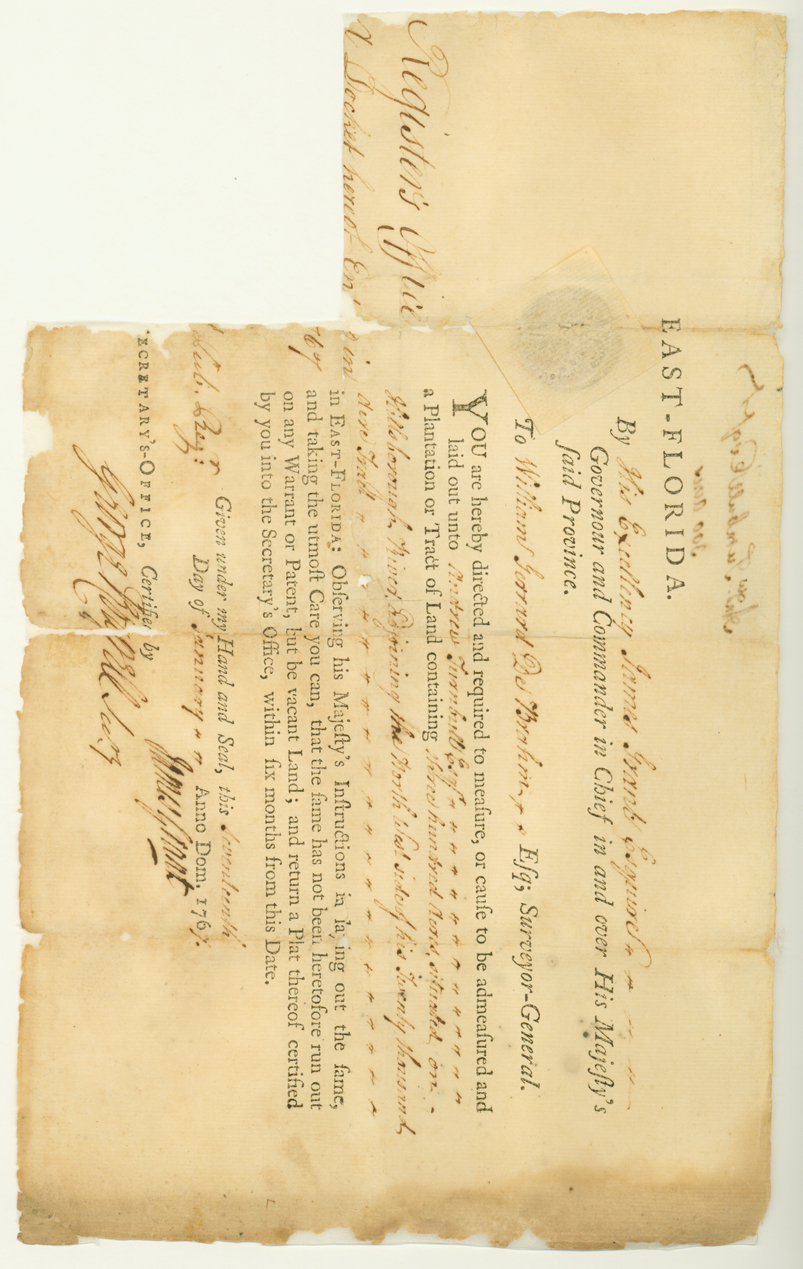 EAST-FLORIDA.
By His Excellency James Grant Esquire
Governour and Commander in Chief in and over His Majeſty's
ſaid Province.
To William Gerrard De Brahm, Eſq; Surveyor-General.
YOU are hereby directed and required to meaſure, or cauſe to be admeaſured and
laid out unto Andrew Turnbull Esqr
a Plantation or Tract of Land containing three hundred Acres, situated on
Hillsborough River, Adjoining the North West side of his Twenty thousand
Acre Tract
in EAST-FLORIDA: Obſerving his Majeſty's Inſtructions in laying out the ſame,
and taking the utmoſt Care you can, that the ſame has not been heretofore run out
on any Warrant or Patent, but be vacant Land; and return a Plat thereof certified
by you into the Secretary's Office, within ſix months from this Date.
Given under my Hand and Seal, this Seventeenth
Day of January Anno Dom. 1767.
James Grant
ECRETARY'S-OFFICE, Certifies by
Register's Office
a Docket hereof En
in
67
Dub. Reg: